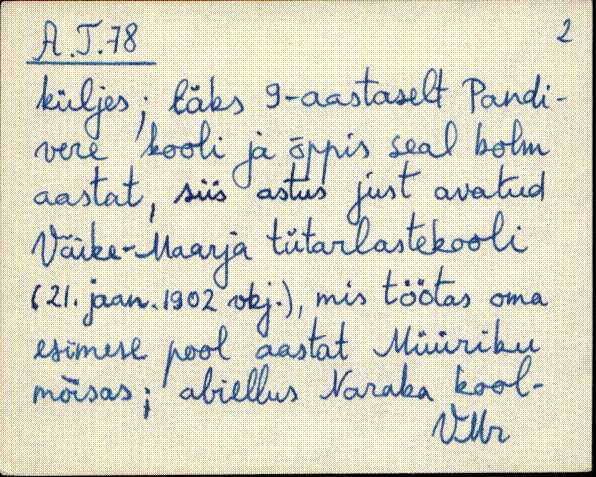 A.T.78 2
küljes; läks 9-aastaselt Pandi-
vere kooli ja õppis seal kolm
aastat, siis astus just avatud
Väike-Maarja tütarlastekooli
(21. jaan. 1902 vkj.), mis töötas oma
esimese pool aastat Müüriku
mõisas; abiellus Naraka kool-
VMr